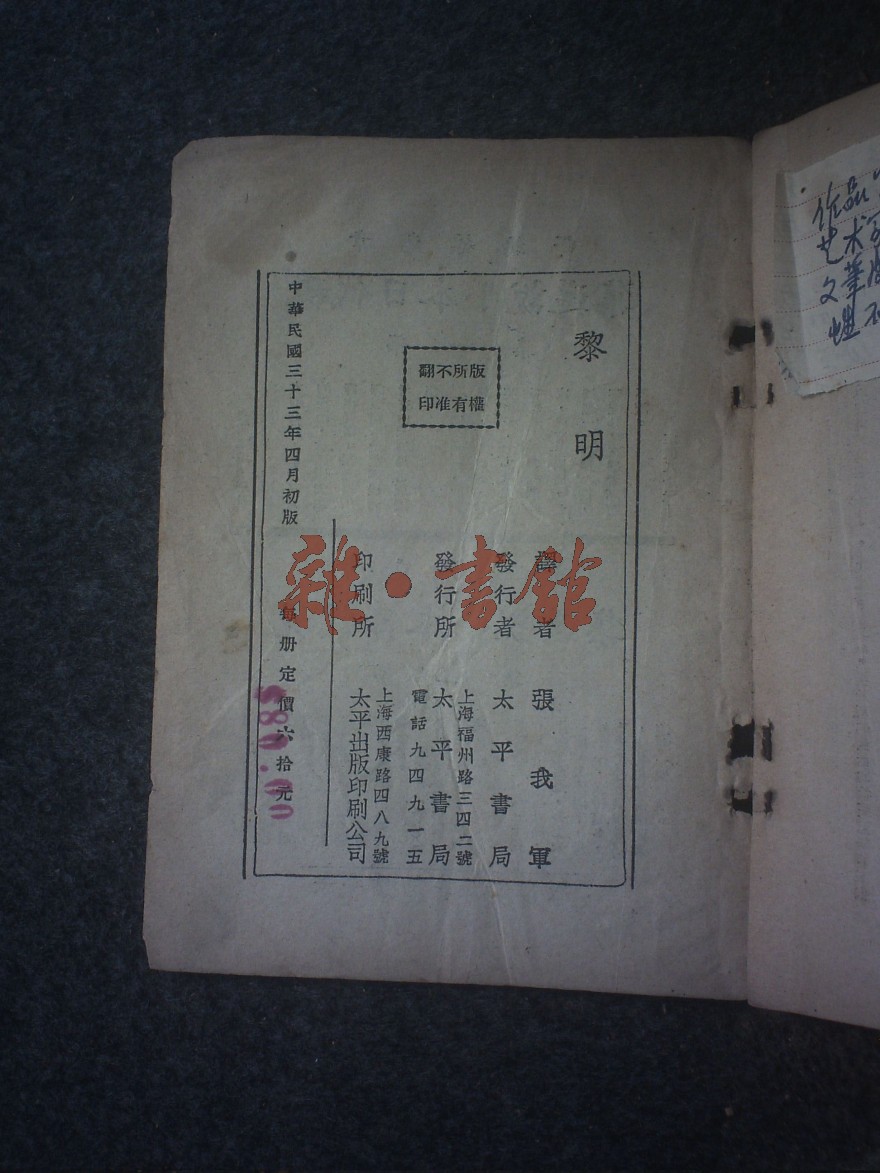 黎明
譯者 張我軍
發行者 太平書局
上海福州路三四二號
發行所 太平書局
電話九四九一五
上海西康路四八九號
印刷所 太平出版印刷公司
版權
所有
不准
翻印
中華民國三十三年四月初版 每册定價六拾元
$80.00
雜·書館
作品
艺术
文筆